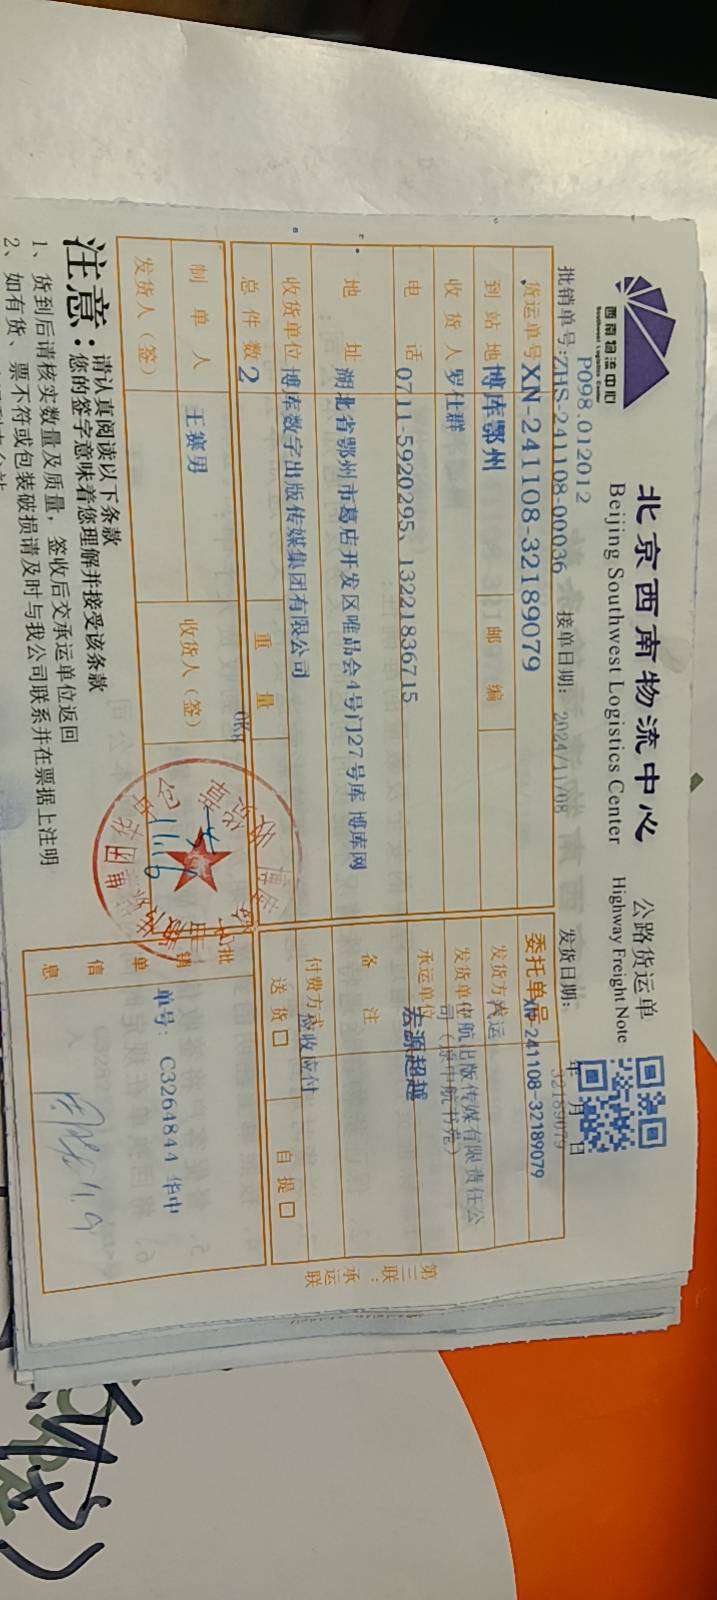 西南物流中心
Southwest Logistics Center
北京西南物流中心 公路货运单
Beijing Southwest Logistics Center Highway Freight Note
P098.012012
批销单号:ZHS-241108-00036 接单日期: 2024/11/08 发货日期: 年 月 日
32189079
货运单号 XN-241108-32189079 委托单号 XN-241108-32189079
到站地 博库鄂州 邮编 发货方式 汽运
收货人 罗仕群 发货单位 中航出版传媒有限责任公司(原中航书苑)
电话 0711-5920295、13221836715 承运单位 宏源超越
地址 湖北省鄂州市葛店开发区唯品会4号门27号库 博库网 备注
收货单位 博库数字出版传媒集团有限公司 付费方式 应收应付
总件数 2 重量 0KG 送货□ 自提□
制单人 王赛男 收货人(签)
发货人(签)
批销单信息 单号: C3264844 华中
第三联:承运联
收货章
注意:请认真阅读以下条款
您的签字意味着您理解并接受该条款
1、货到后请核实数量及质量,签收后交承运单位返回
2、如有货、票不符或包装破损请及时与我公司联系并在票据上注明